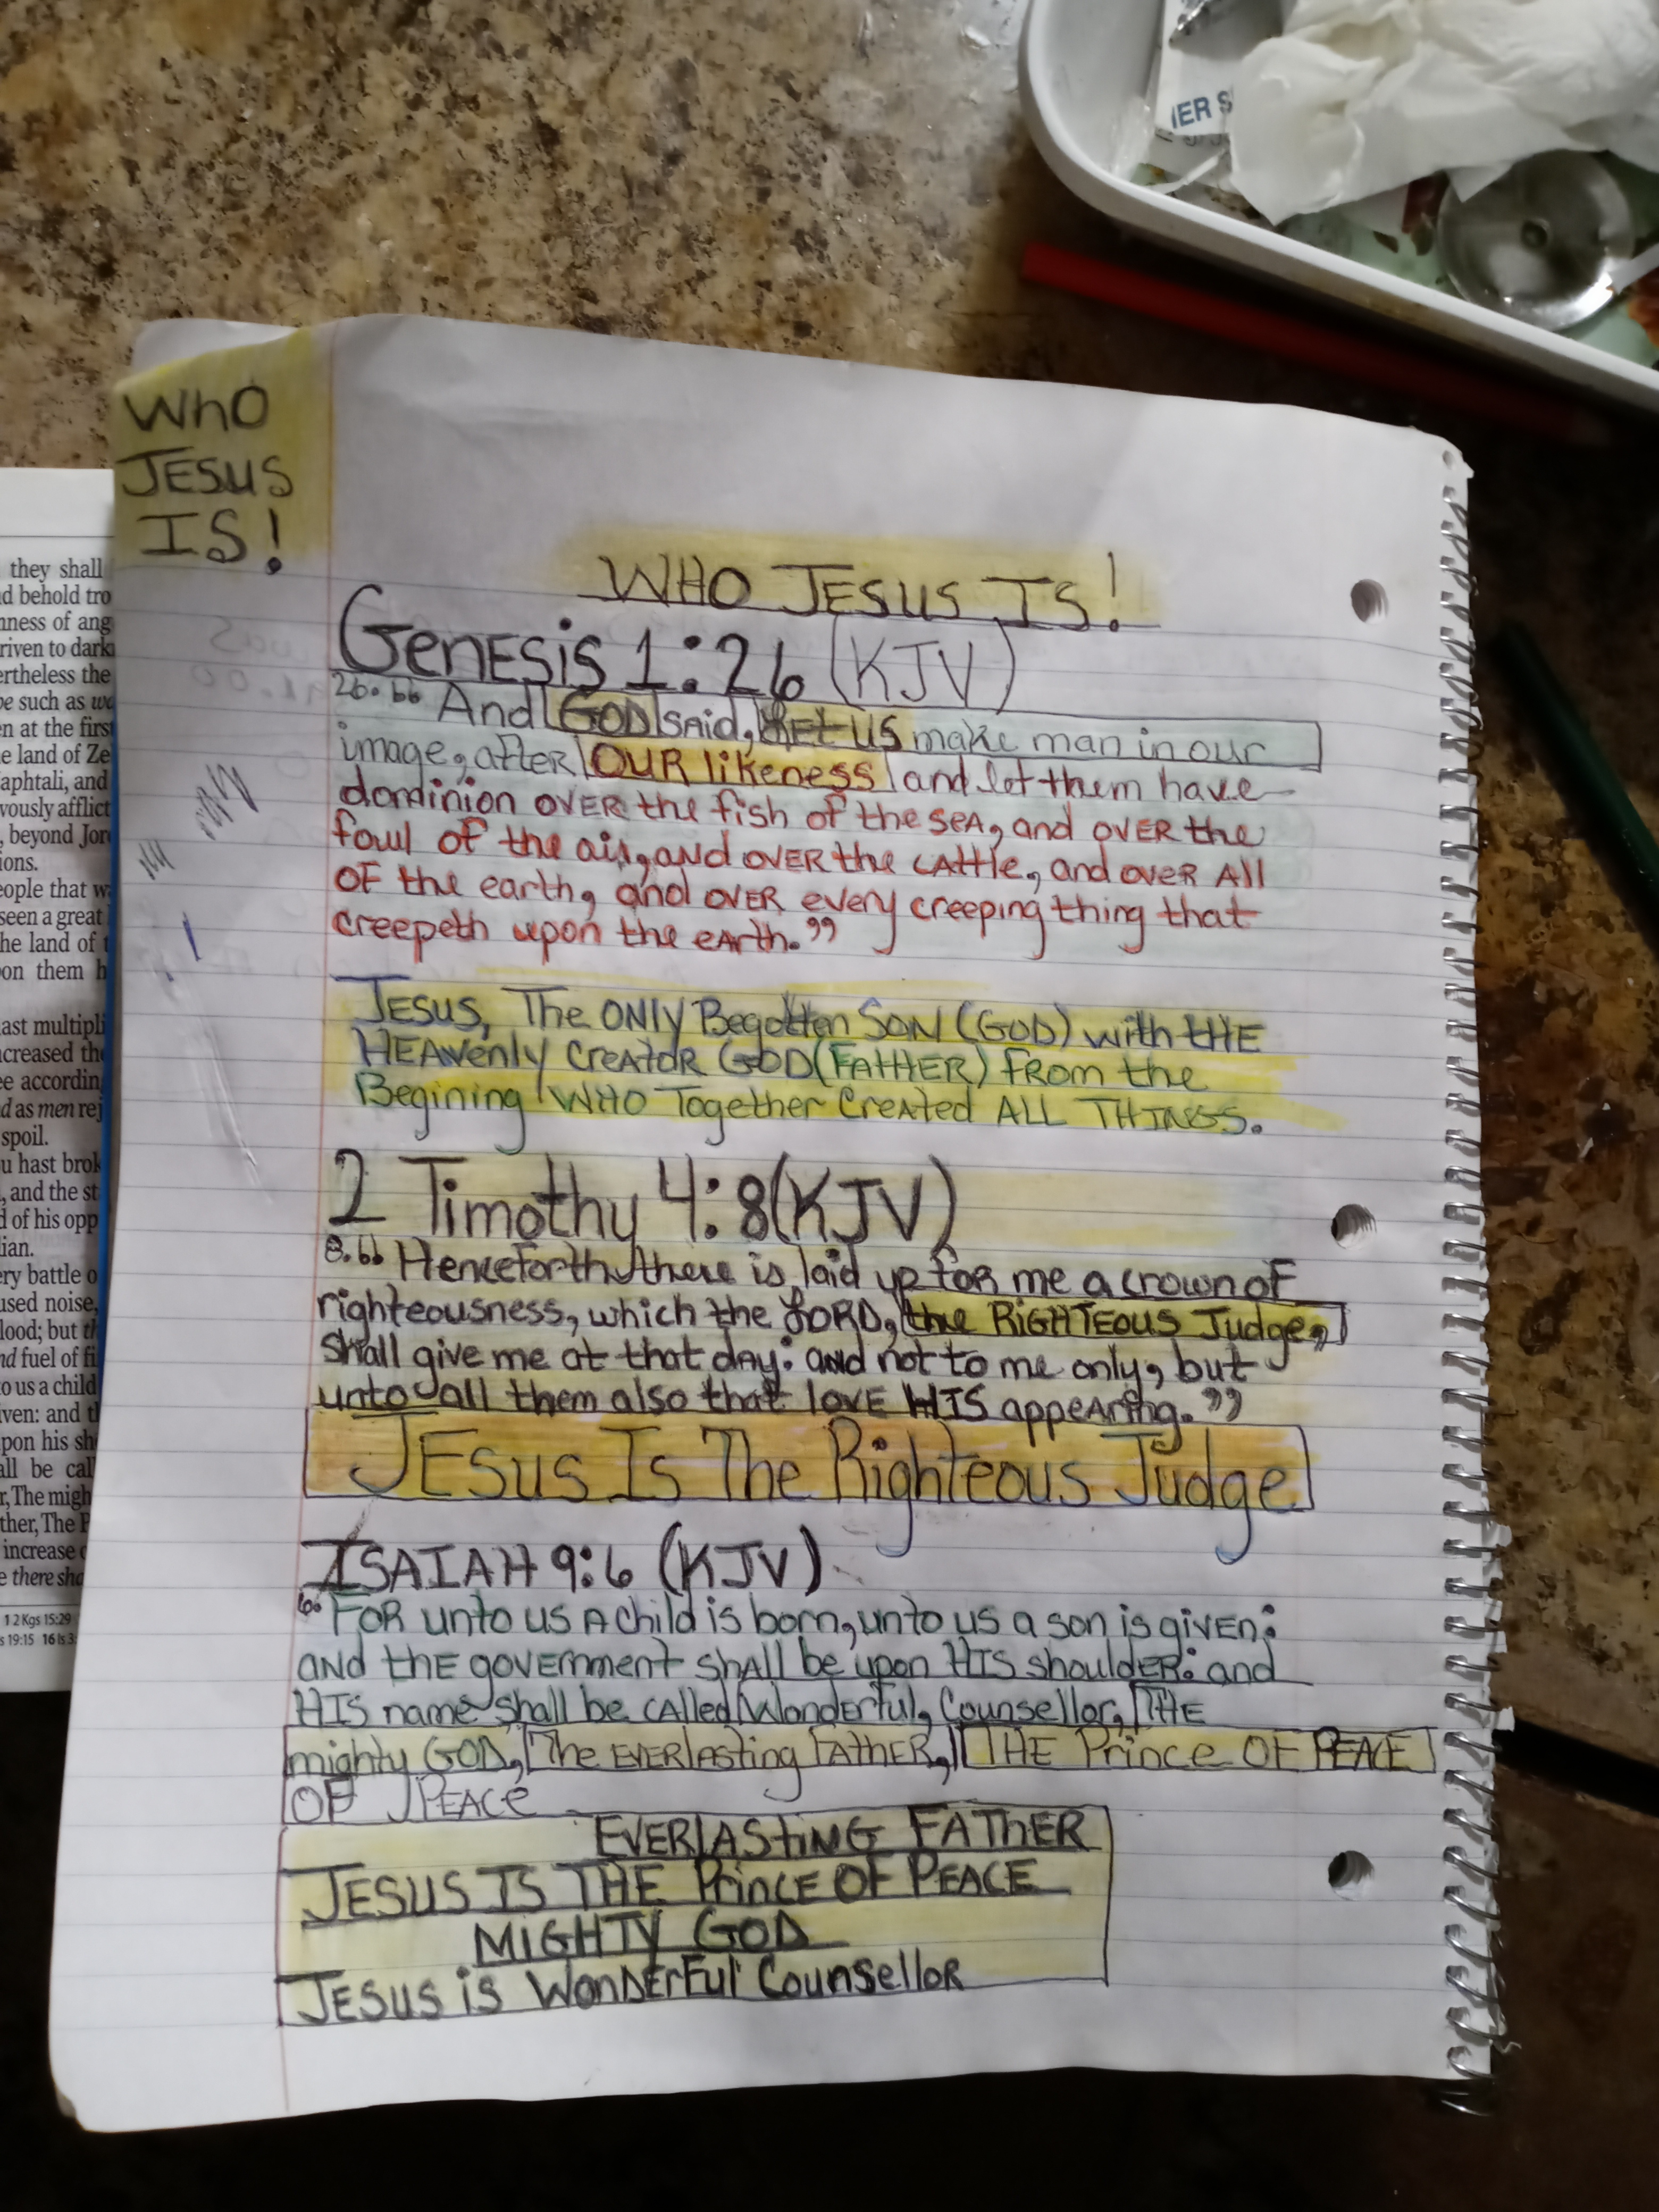 IER S
WhO
JESUS
IS!
they shall
d behold tro
nness of ang
riven to dark
ertheless the
be such as we
en at the first
e land of Ze
aphtali, and
vously afflict
, beyond Jor
ions.
eople that w
seen a great
he land of t
on them h
ast multipli
creased the
e accordin
d as men rej
spoil.
u hast brok
, and the st
d of his opp
lian.
ery battle o
used noise,
lood; but th
nd fuel of fi
to us a child
iven: and th
pon his sh
all be cal
r, The migh
ther, The P
increase o
e there sha
1 2 Kgs 15:29
s 19:15 16 Is 3:
WHO JESUS IS!
GENESIS 1:26 (KJV)
26. “ And GOD SAid, LET US make man in our
image, after OUR likeness and let them have
dominion OVER the fish of the SEA, and OVER the
fowl of the air, and OVER the CATTLE, and over All
OF the earth, and OVER every creeping thing that
creepeth upon the earth.”
JESUS, The ONLY Begotten SON (GOD) with tHE
HEAvenly CreAtoR GOD (FATHER) From the
Begining WHO Together CreAted ALL THINGS.
2 Timothy 4:8 (KJV)
8. “ Henceforth there is laid up for me a crown of
righteousness, which the LORD, the RiGHTEOUS Judge,
shall give me at that day: and not to me only, but
unto all them also that lovE HIS appeAring.”
JEsus Is The Righteous Judge
ISAIAH 9:6 (KJV)
6. FOR unto us A child is born, unto us a son is givEn:
AND thE govERnment shAll be upon HIS shouldER: and
HIS name shall be cAlled Wonderful, Counsellor, THE
mighty GOD, The EVERlAsting FATHER, THE Prince OF PEACE
OF PEACE
EVERlAStiNG FATHER
JESUS IS THE PrincE OF PEACE
MiGHTY GOD
JESUS iS WonDErFul Counsellor